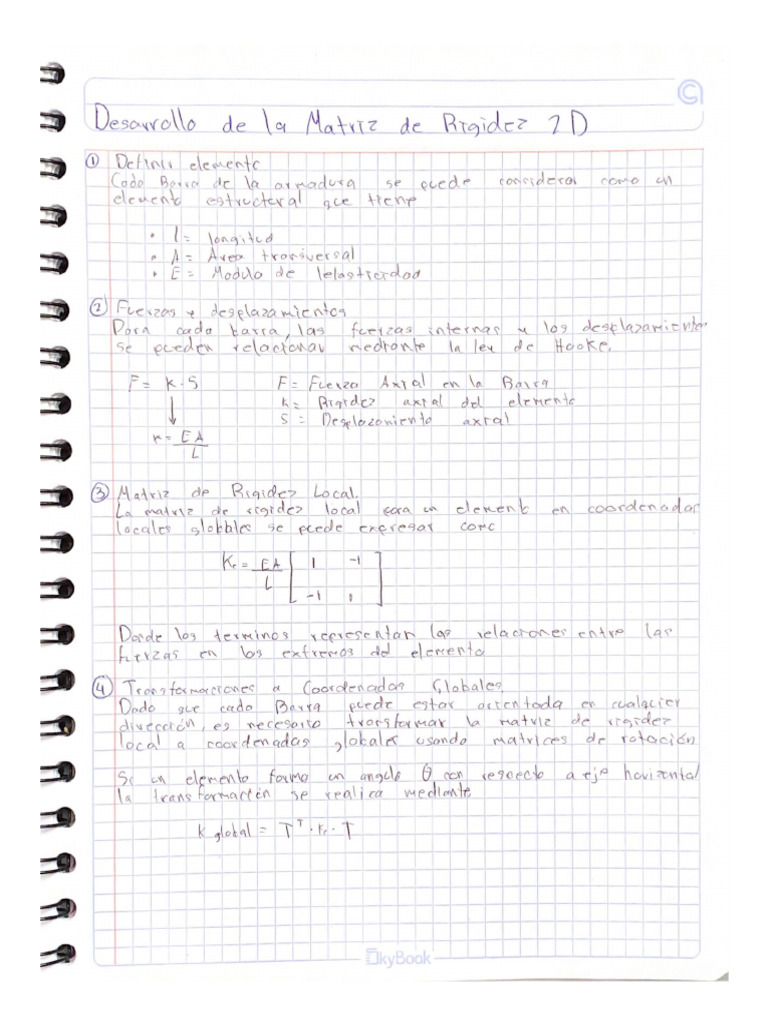 Desarrollo de la Matriz de Rigidez 2D
① Definir elemento
Cada Barra de la armadura se puede considerar como un
elemento estructural que tiene
• l = longitud
• A = Area transversal
• E = Modulo de lelasticidad
② Fuerzas y desplazamientos
Para cada barra, las fuerzas internas y los desplazamiento
se pueden relacionar mediante la ley de Hooke.
F = K · S F = Fuerza Axial en la Barra
↓ k = Rigidez axial del elemento
S = Desplazamiento axial
K = EA / L
③ Matriz de Rigidez Local.
La matriz de rigidez local para un element en coordenadas
locales globbles se puede expresar como
Kr = EA / L [ 1 -1
-1 1 ]
Donde los terminos representan las relaciones entre las
fuerzas en los extremos del elemento
④ Transformaciones a Coordenadas Globales.
Dado que cada Barra puede estar orientada en cualquier
dirección, es necesario transformar la matriz de rigidez
local a coordenadas globales usando matrices de rotación
Si un elemento forma un angulo θ, con respecto a eje horizontal
la transformación se realica mediante
K global = T^T · Kr · T
SkyBook